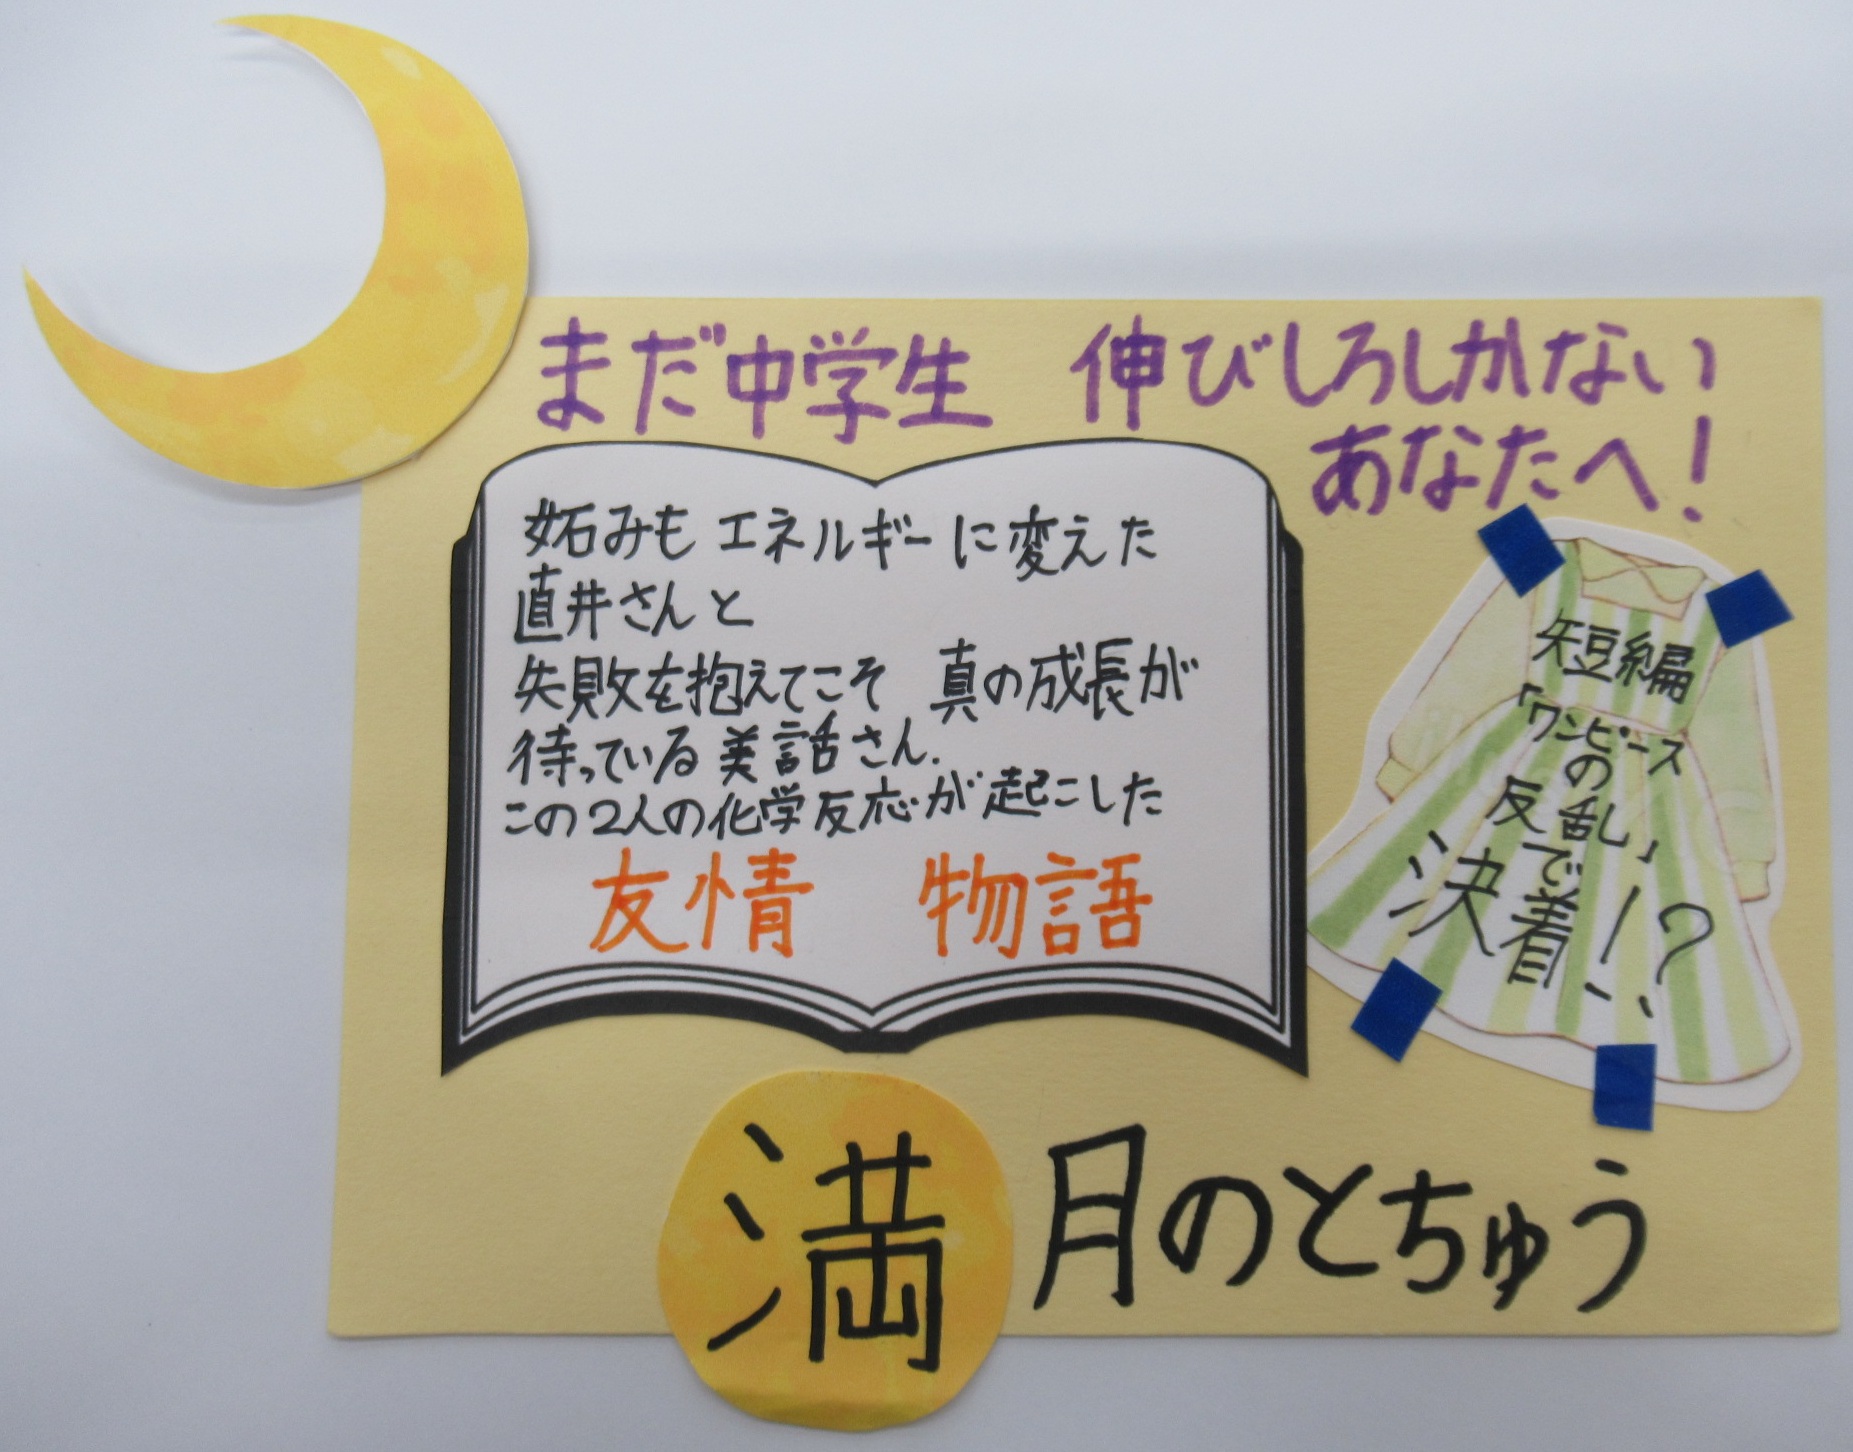 まだ中学生 伸びしろしかない
あなたへ!
妬みも エネルギーに変えた
直井さんと
失敗を抱えてこそ 真の成長が
待っている 美話さん.
この2人の化学反応が起こした
友情 物語
短編
「ワンピース
の
反乱」
で
決着!?
満月のとちゅう